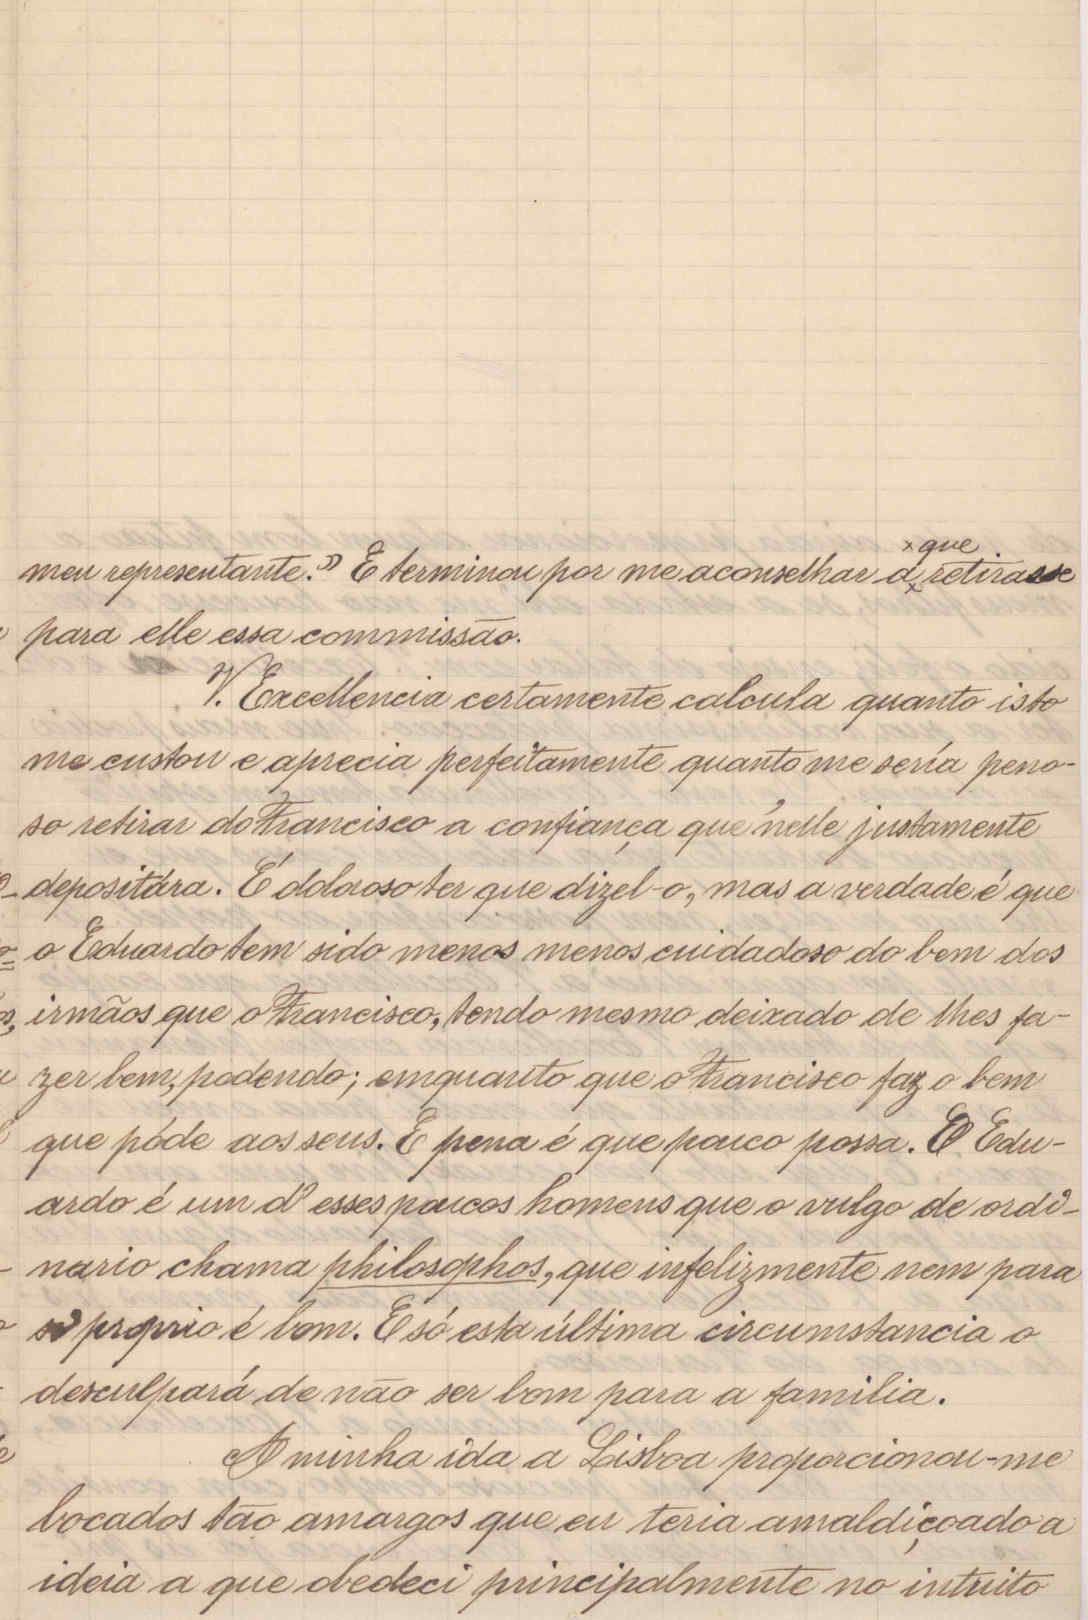 meu representante.» E terminou por me aconselhar a que retirasse
para elle essa commissão.
V. Excellencia certamente calcula quanto isto
me custou e aprecia perfeitamente quanto me sería peno-
so retirar do Francisco a confiança que n'elle justamente
depositára. É doloroso ter que dizel-o, mas a verdade é que
o Eduardo tem sido menos menos cuidadoso do bem dos
irmãos que o Francisco, tendo mesmo deixado de lhes fa-
zer bem, podendo; emquanto que o Francisco faz o bem
que póde aos seus. E pena é que pouco possa. O Edu-
ardo é um d'esses poucos homens que o vulgo de ordi-
nario chama philosophos, que infelizmente nem para
si proprio é bom. E só esta última circumstancia o
desculpará de não ser bom para a familia.
A minha ida a Lisboa proporcionou-me
bocados tão amargos que eu teria amaldiçoado a
ideia a que obedeci principalmente no intuito